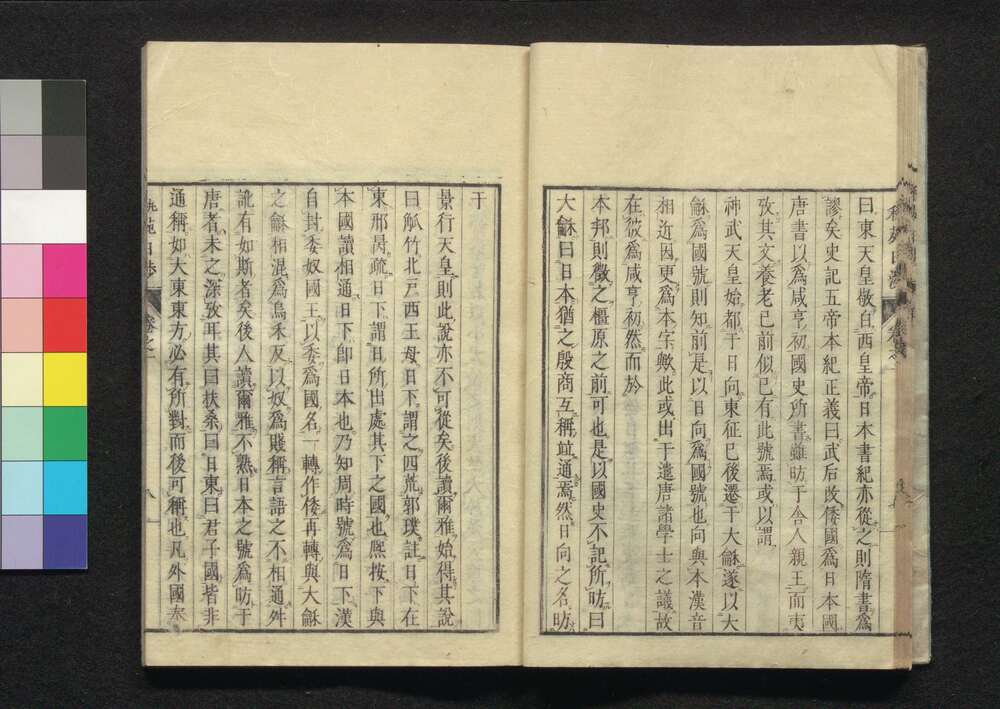 曰東天皇敬白西皇帝日本書紀亦從之則隋書爲
謬矣史記五帝本紀正義曰武后改倭國爲日本國
唐書以爲咸亨初國史所書雖昉于舎人親王而夷
攷其文養老已前似已有此號焉或以謂
神武天皇始都于日向東征已後遷于大龢遂以大
龢爲國號則知前是以日向爲國號也向與本漢音
相近因更爲本字歟此或出于遣唐諸學士之議故
在彼爲咸亨初然而於
本邦則徵之橿原之前可也是以國史不記所昉曰
大龢曰日本猶之殷商互稱竝通焉然日向之名昉
于
景行天皇則此說亦不可從矣後讀爾雅始得其說
曰觚竹北戸西王母日下謂之四荒郭璞註日下在
東那昺疏日下謂日所出處其下之國也熈按下與
本國讀相通日下卽日本也乃知周時號爲日下漢
自封委奴國王以委爲國名一轉作倭再轉與大龢
之龢相混爲烏禾反以奴爲賤稱言語之不相通舛
訛有如斯者矣後人讀爾雅不熟日本之號爲昉于
唐者未之深攷耳其曰扶桑曰日東曰君子國皆非
通稱如大東東方必有所對而後可稱也凡外國奉
苑日渉
卷之一
八